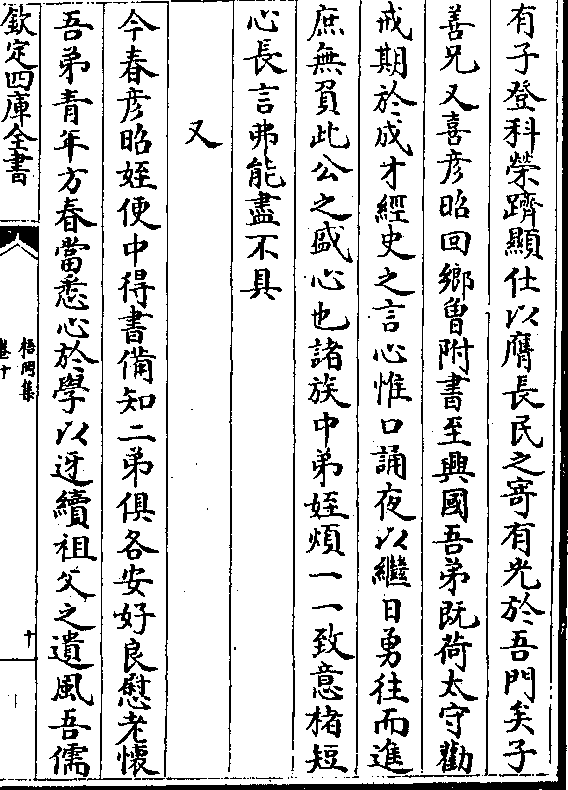 有子登科榮躋顯仕以膺長民之寄有光於吾門矣子
善兄又喜彦昭回鄉曽附書至興國吾弟既荷太守勸
戒期於成才經史之言心惟口誦夜以繼日勇往而進
庶無負此公之盛心也諸族中弟姪煩一一致意楮短
心長言弗能盡不具
又
今春彦昭姪便中得書備知二弟俱各安好良慰老懷
吾弟青年方春當悉心於學以迓續祖父之遺風吾儒
欽定四庫全書
梧岡集
卷十
十